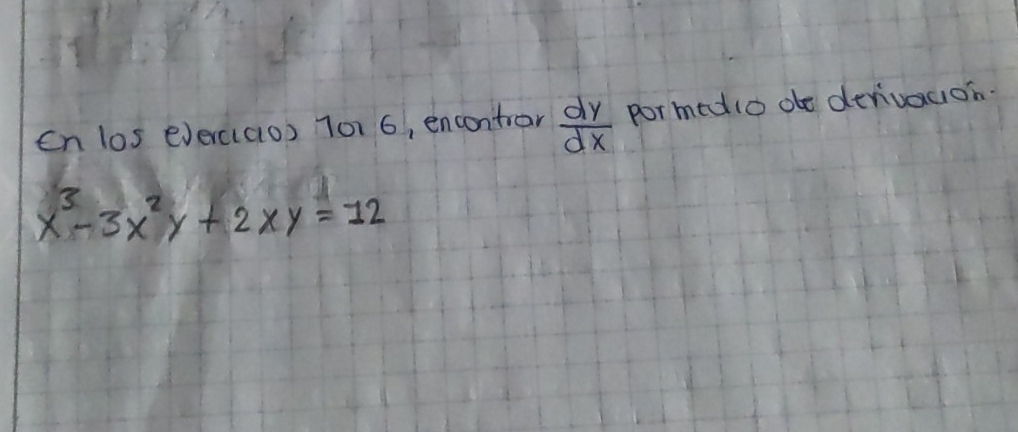 En los ejercicios 1 al 6, encontrar dy/dx por medio de derivación.
x³-3x²y+2xy=12